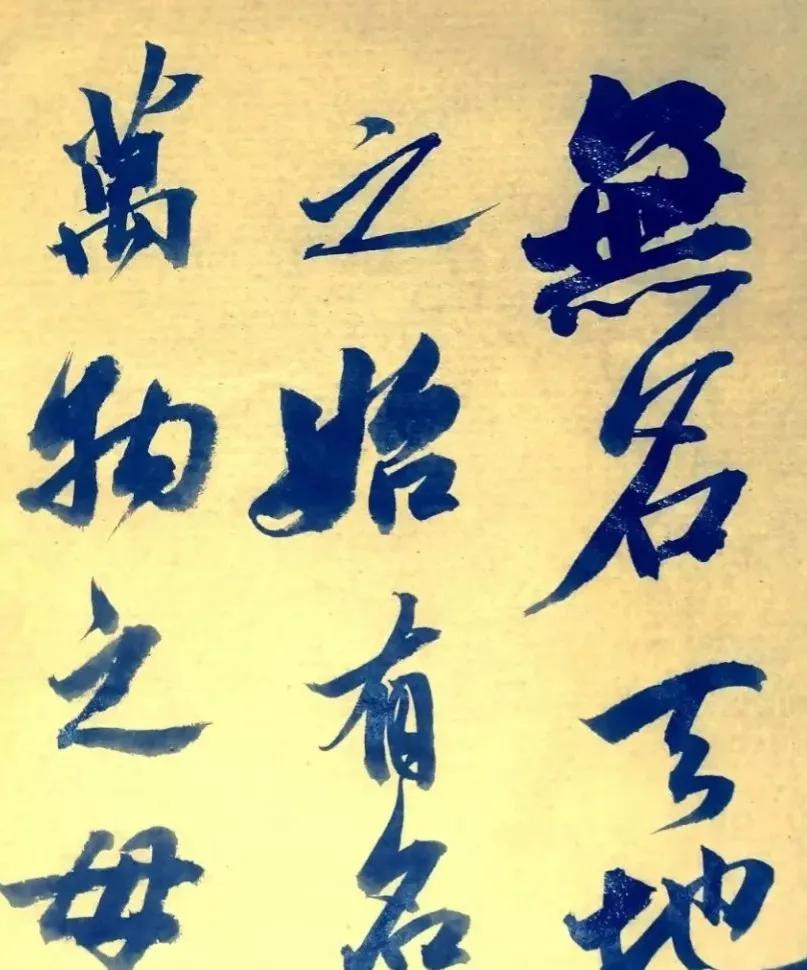 無名天地
之始有名
萬物之母